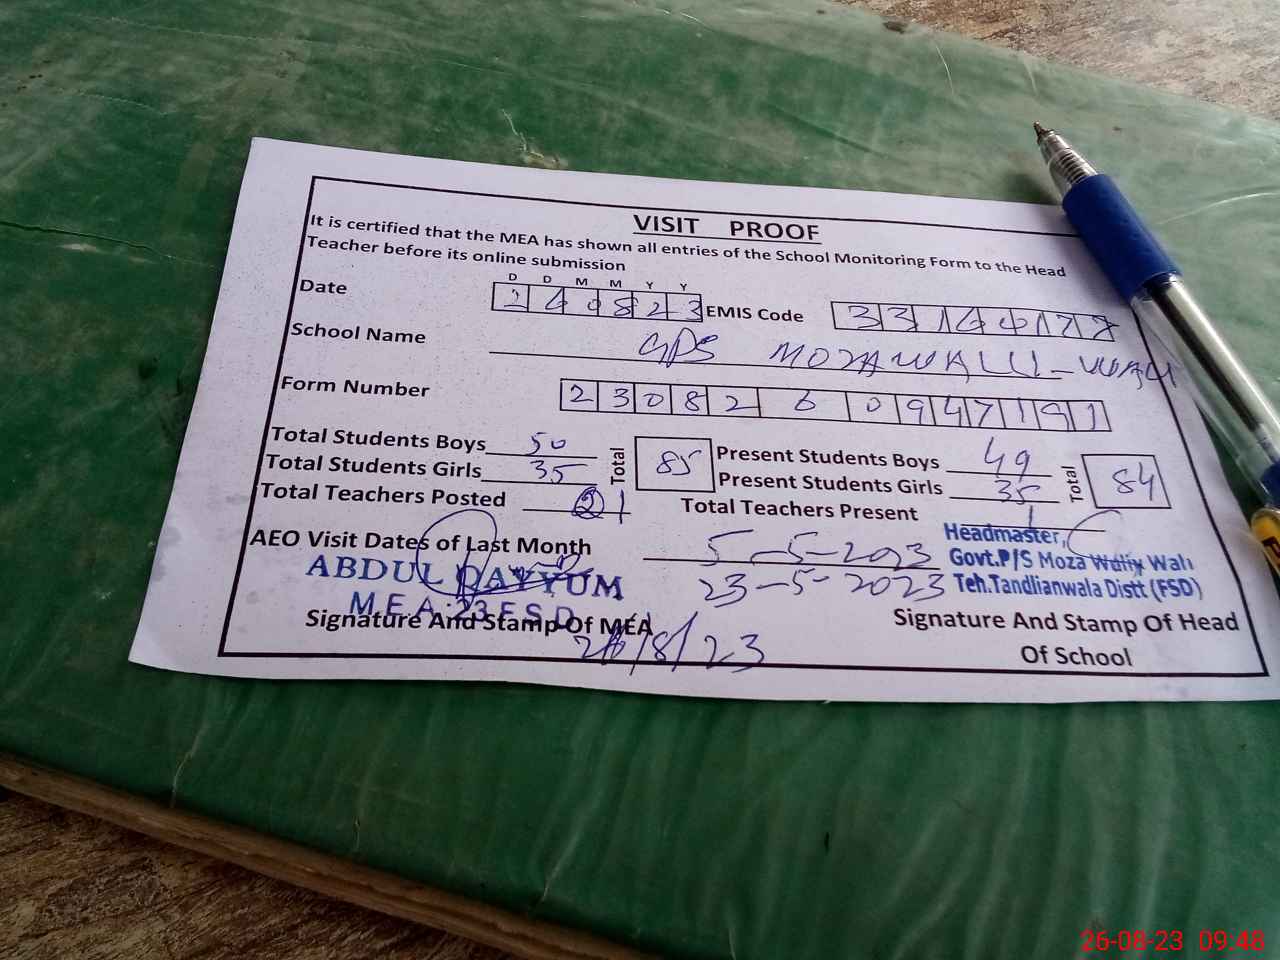 VISIT PROOF
It is certified that the MEA has shown all entries of the School Monitoring Form to the Head
Teacher before its online submission
D D M M Y Y
Date 2 6 0 8 2 3 EMIS Code
School Name GPS MOZA WALLI-WALI
Form Number 2 3 0 8 2 6 0 9 4 7 1 9 1
Total Students Boys 50 Total 85 Present Students Boys 49 Total 84
Total Students Girls 35 Present Students Girls 35
Total Teachers Posted 1 Total Teachers Present 1
AEO Visit Dates of Last Month 5-5-2023
23-5-2023
Headmaster,
Govt.P/S Moza Wali
Teh.Tandlianwala Distt (FSD)
ABDUL QAYYUM
M.E.A.23 F.S.D
Signature And Stamp Of MEA
26/8/23
Signature And Stamp Of Head
Of School
26-08-23 09:48